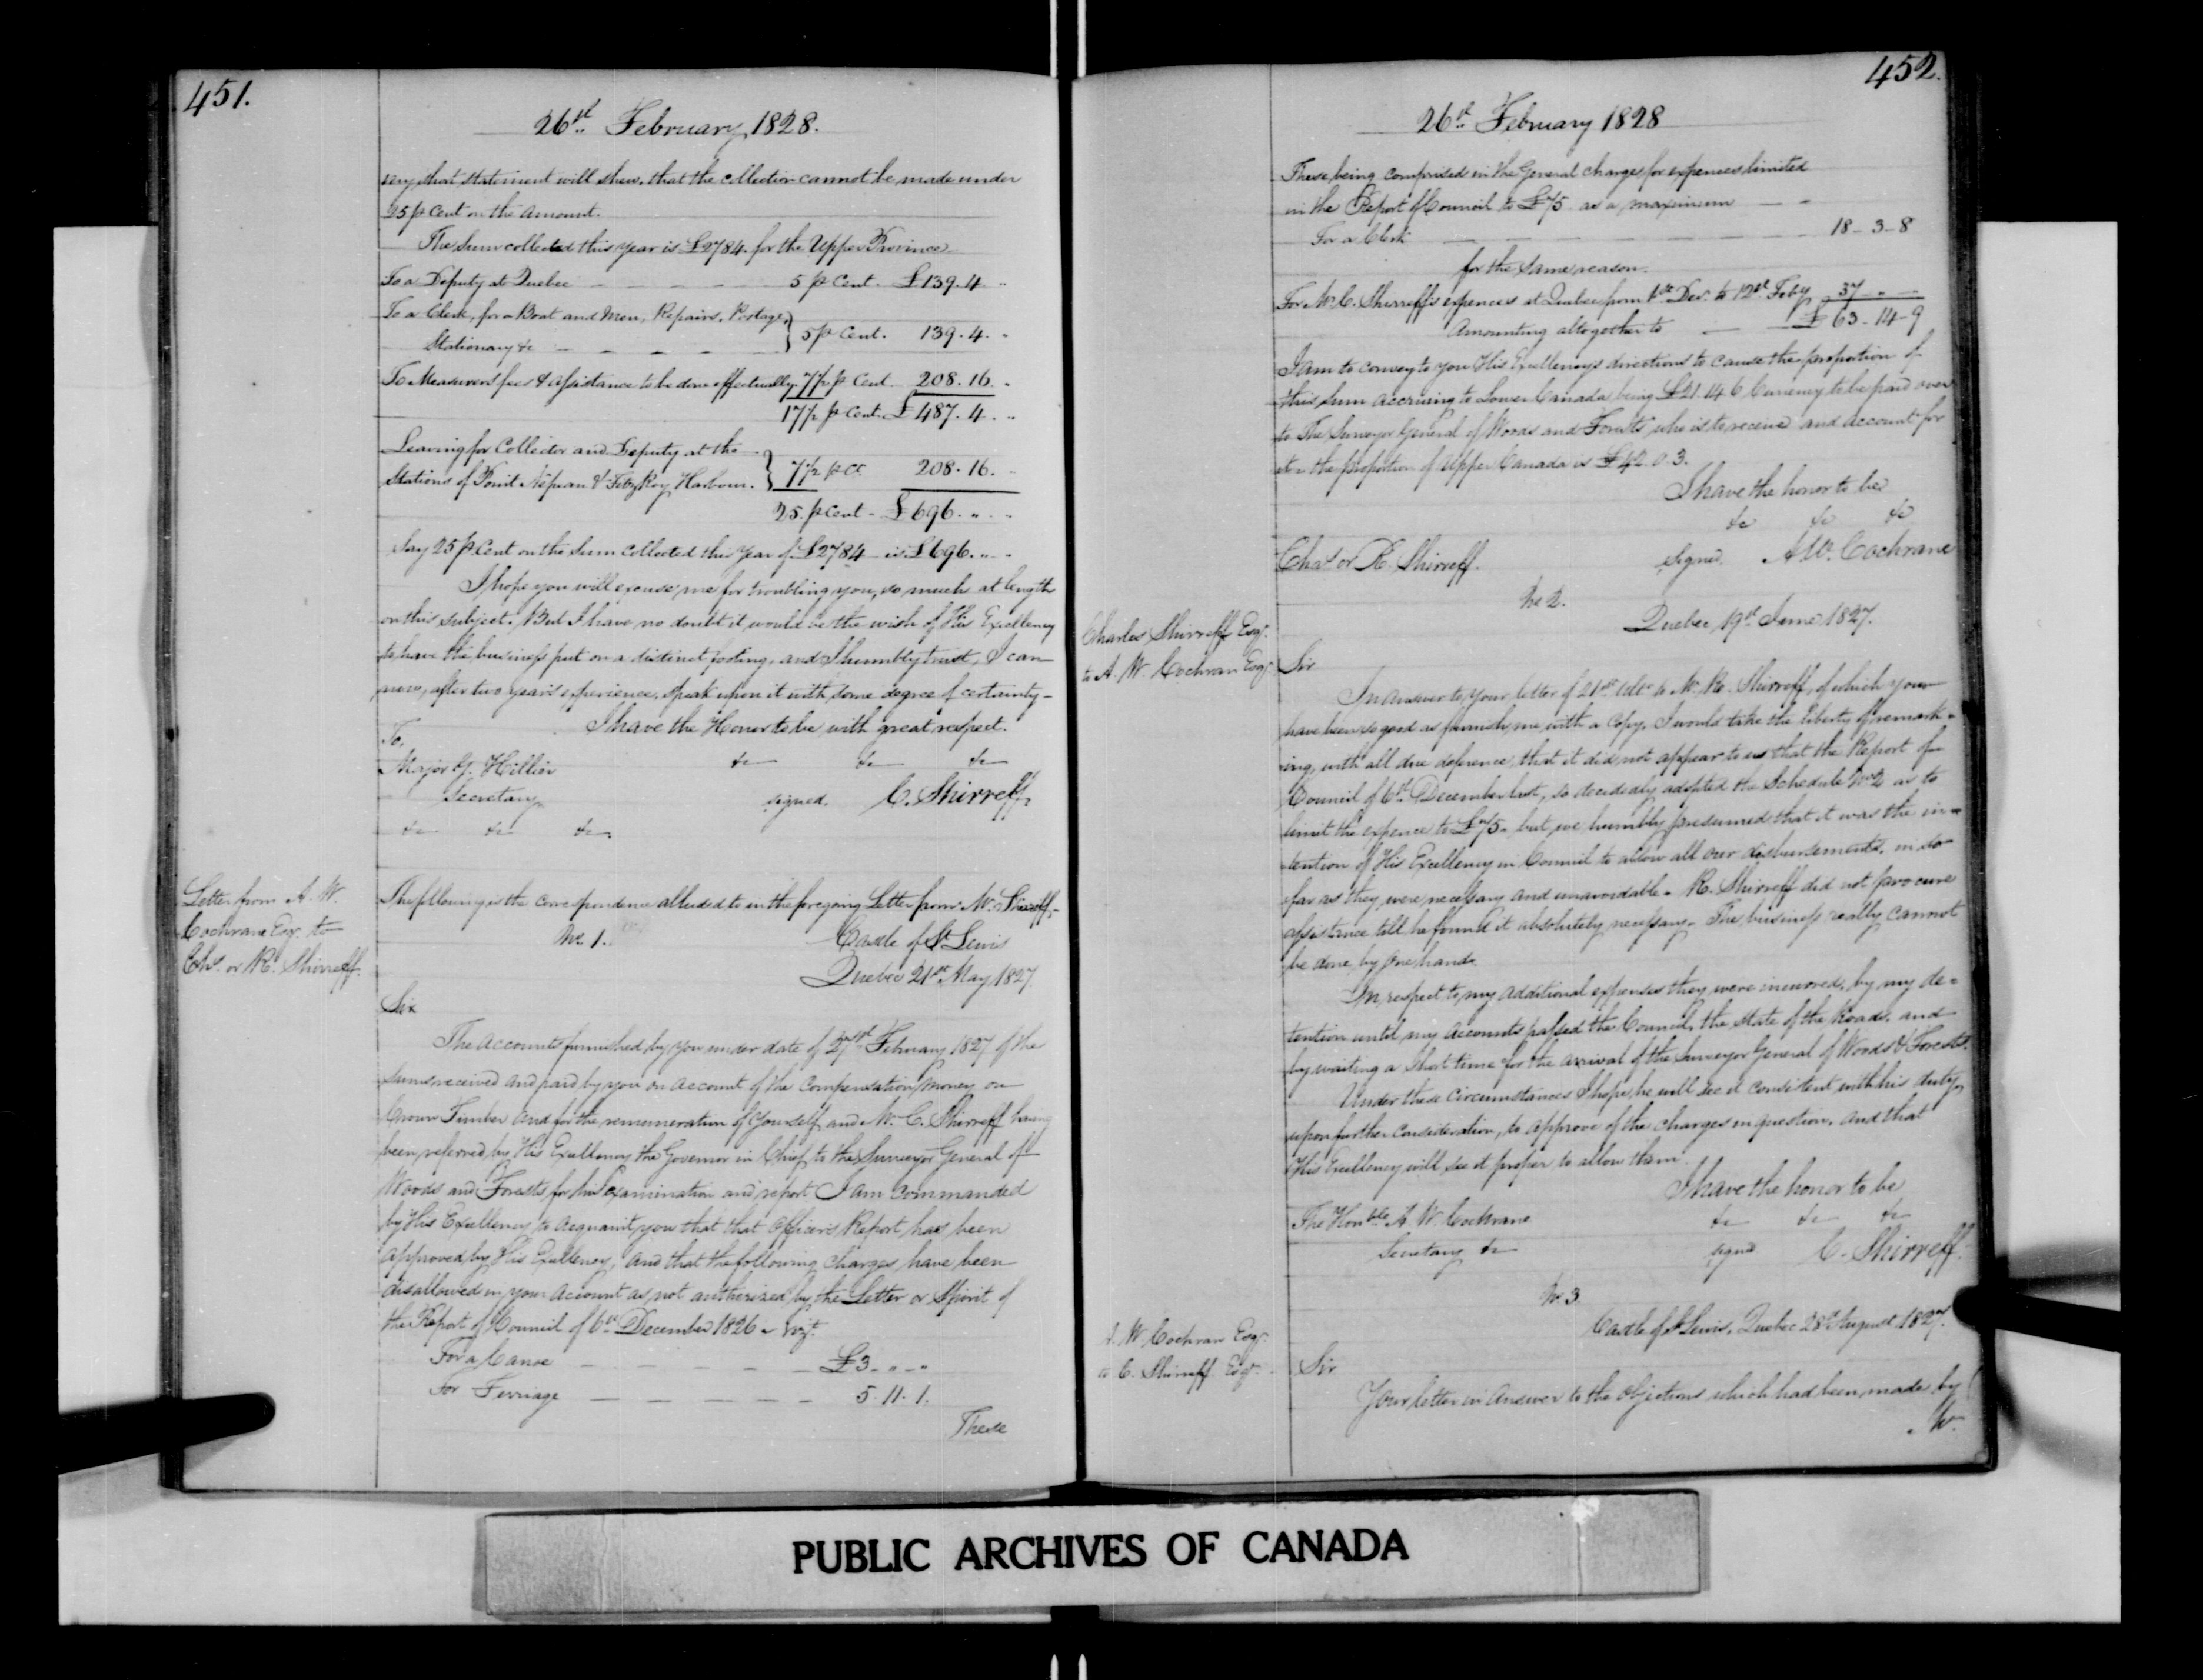 451.
26th February 1828.
very short statement will shew, that the collection cannot be made under
25 p Cent on the amount.
The Sum collected this year is £2784. for the Upper Province
To a Deputy at Quebec — — — — 5 p Cent. £139.4. "
To a Clerk, for a Boat and Men, Repairs, Postage,
Stationary &c — — — — } 5 p Cent. 139.4. "
To Measurers fees & assistance to be done effectually 7½ p Cent. 208.16. "
17½ p Cent. £487.4. "
Leaving for Collector and Deputy at the
Stations of Point Nepean & FitzRoy Harbour. } 7½ p Ct. 208.16. "
25. p Cent - £696. " "
Say 25 p Cent on the Sum collected this year of £2784 is £696. " "
I hope you will excuse me for troubling you, so much at length
on this subject. But I have no doubt it would be the wish of His Excellency
to have the business put on a distinct footing, and I humbly trust, I can
now, after two years experience, speak upon it with some degree of certainty—
I have the Honor to be with great respect.
To,
Major G. Hillier &c &c &c
Secretary signed. C. Shirreff,
&c &c &c.
Letter from A. W.
Cochrane Esqr. to
Chs. or R. Shirreff.
The following is the correspondence alluded to in the foregoing Letter from Mr. Shirreff,—
No. 1. Castle of St Lewis
Quebec 21st May 1827
Sir
The Accounts furnished by you under date of 27th February 1827 of the
sums received and paid by you on account of the Compensation Money on
Crown Timber and for the remuneration of yourself and Mr. C. Shirreff having
been referred by His Excellency the Governor in Chief, to the Surveyor General of
Woods and Forests for his examination and report I am commanded
by His Excellency to acquaint you that that Officers Report has been
approved by His Excellency, and that the following charges have been
disallowed in your Account as not authorized by the Letter or Spirit of
the Report of Council of 6th December 1826 - vizt.
For a Canoe — — — — — — £3 - " - "
For Ferriage — — — — — 5. 11. 1.
These
452.
26th February 1828
These being comprised in the General charges for expences limited
in the Report of Council to £75 as a maximum — -
For a Clerk — — — — — — 18 - 3 - 8
for the same reason.
For Mr. C. Shirreff's expences at Quebec from 1st Decr. to 12th Feby 37 - " —
Amounting altogether to — £63 - 14 - 9
I am to convey to you His Excellency's directions to cause the proportion of
this sum accruing to Lower Canada being £21.14.6 Currency to be paid over
to The Surveyor General of Woods and Forests who is to receive and account for
it - the proportion of Upper Canada is £42.0.3.
I have the honor to be
&c &c &c
Chas. or R. Shirreff. signed. A.W. Cochrane
No 2.
Quebec 19th June 1827.
Charles Shirreff Esqr.
to A. W. Cochran Esqr.
Sir
In answer to your letter of 21st Ulto to Mr. R. Shirreff, of which you
have been so good as furnish me with a Copy, I would take the liberty of remark-
ing, with all due deference, that it did not appear to us that the Report of
Council of 6th December last, so decidedly adopted the Schedule No 2 as to
limit the expence to £75. but we humbly presumed that it was the in=
tention of His Excellency in Council to allow all our disbursements, in so
far as they were necessary and unavoidable. R. Shirreff did not procure
assistance till he found it absolutely necessary. The business really cannot
be done by one hand.
In respect to my additional expenses they were incurred, by my de=
tention until my accounts passed the Council, the State of the Roads, and
by waiting a short time for the arrival of the Surveyor General of Woods & Forests.
Under these circumstances I hope, he will see it consistent with his duty,
upon further consideration, to approve of the charges in question, and that
His Excellency will see it proper to allow them.
I have the honor to be
The Honble A. W. Cochrane &c &c &c
Secretary &c signed C. Shirreff.
No. 3
Castle of St Lewis, Quebec 28th August 1827.
A. W. Cochran Esqr.
to C. Shirreff Esqr.
Sir
Your letter in Answer to the objections which had been made by
Mr.
PUBLIC ARCHIVES OF CANADA